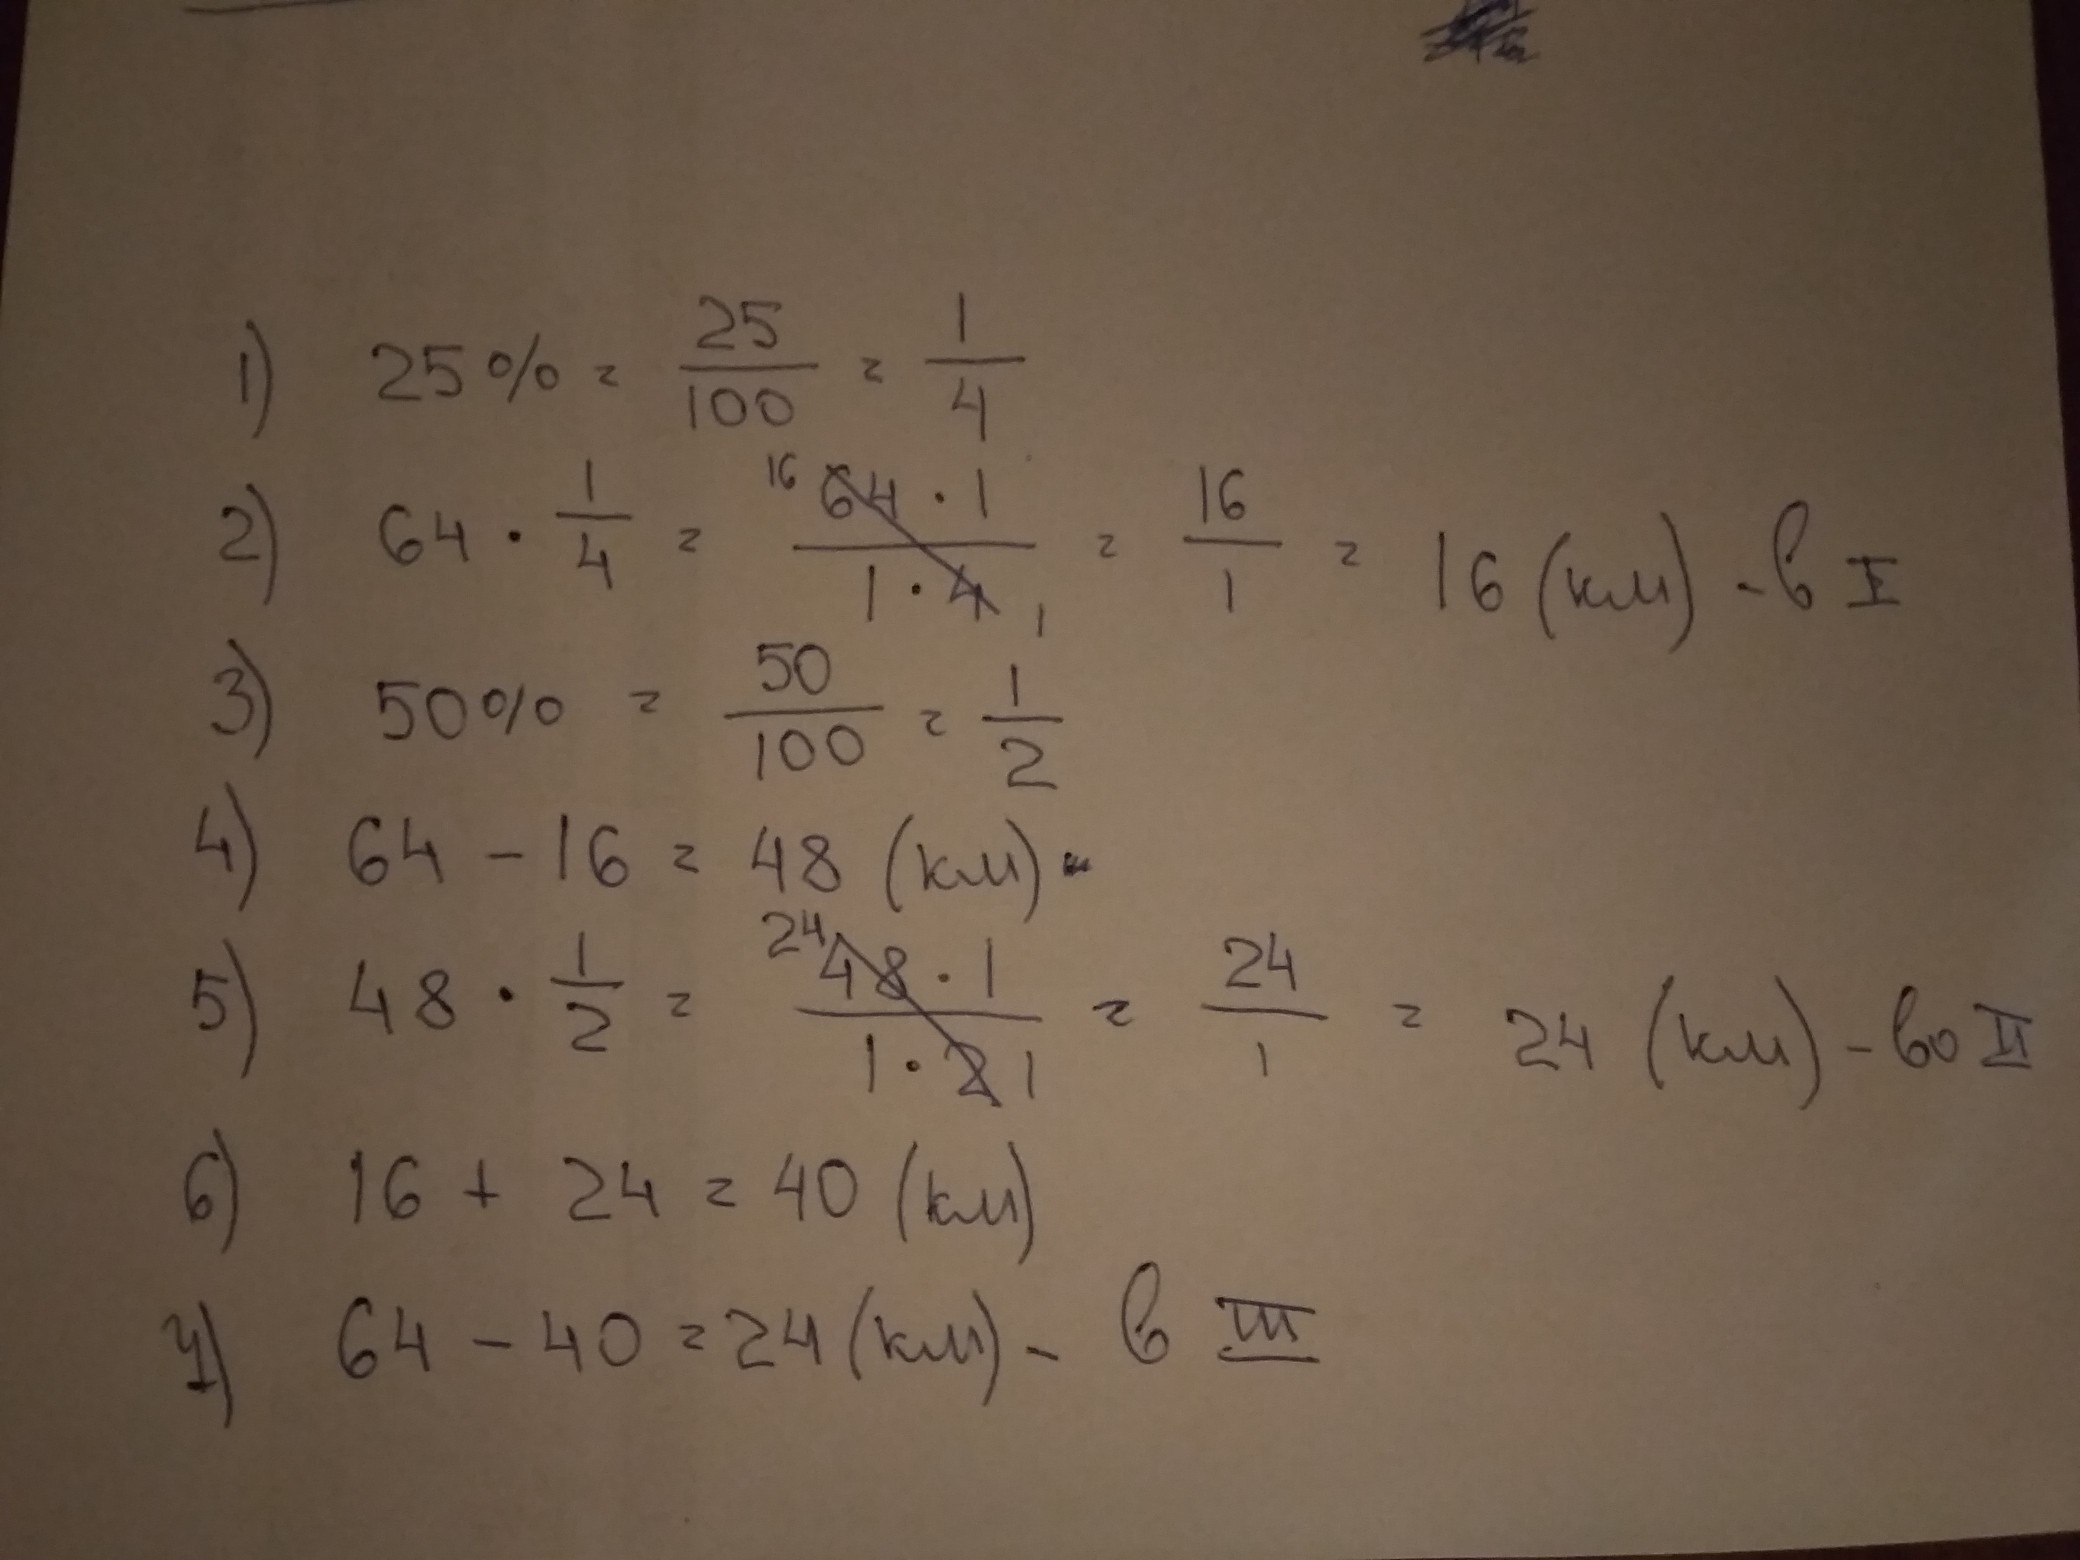 1) 25% = 25/100 = 1/4
2) 64 · 1/4 = 16 64 · 1 / 1 · 4 1 = 16/1 = 16 (км) - в I
3) 50% = 50/100 = 1/2
4) 64 - 16 = 48 (км)
5) 48 · 1/2 = 24 48 · 1 / 1 · 2 1 = 24/1 = 24 (км) - во II
6) 16 + 24 = 40 (км)
7) 64 - 40 = 24 (км) - в III